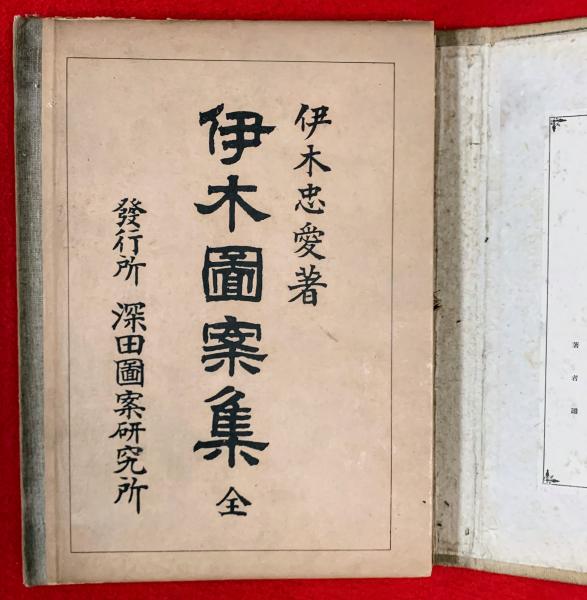 伊木忠愛著
伊木圖案集 全
發行所 深田圖案研究所
著者